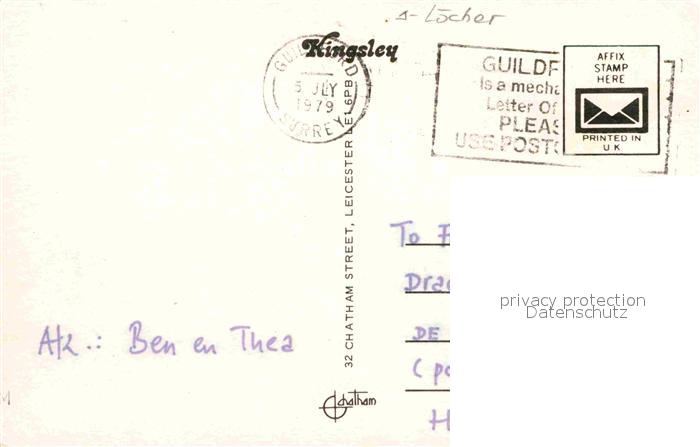 Δ-Löcher
Kingsley
GUILDFORD
5 JLY
1979
SURREY
GUILDF
Is a mecha
Letter Of
PLEAS
USE POSTC
AFFIX
STAMP
HERE
PRINTED IN
U K
32 CHATHAM STREET, LEICESTER LE1 6PB
To F
Drac
DE
(po
H
privacy protection
Datenschutz
Afz.: Ben en Thea
chatham